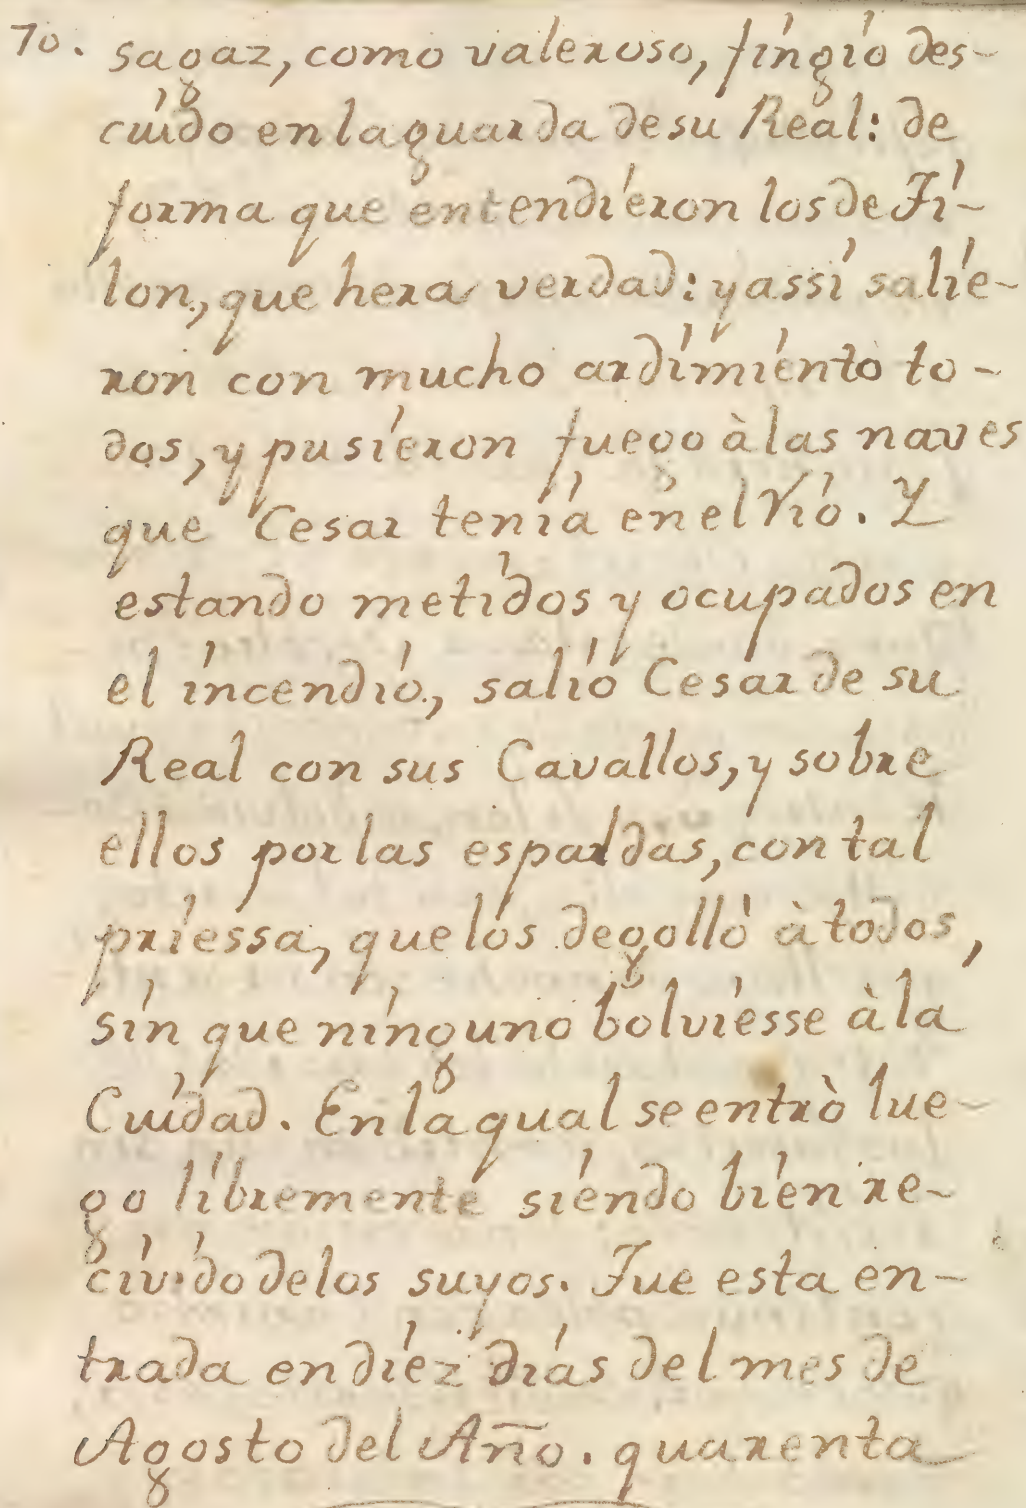 70. sagaz, como valeroso, fingío des-
cuído en la guarda de su Real: de
forma que entendíeron los de Fí-
lon, que hera verdad: y assí salíe-
ron con mucho ardímíento to-
dos, y pusíeron fuego à las naves
que Cesar tenía en el Río. Y
estando metídos y ocupados en
el íncendío, salío Cesar de su
Real con sus Cavallos, y sobre
ellos por las espardas, con tal
príessa, que los degolló à todos,
sín que nínguno bolvíesse à la
Cuídad. En la qual se entrò lue-
go líbremente síendo bíen re-
cívído de los suyos. Fue esta en-
trada en díez días del mes de
Agosto del Año. quarenta